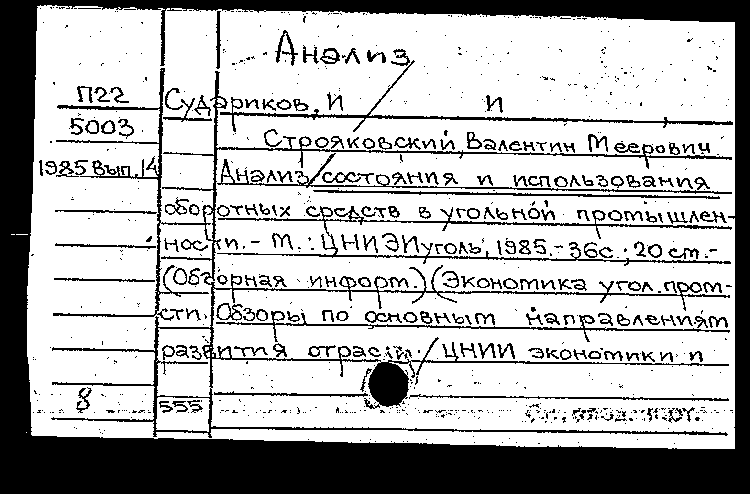 Анализ
П22 Судариков, И И
5003 Строяковский, Валентин Меерович
1985 Вып. 14 Анализ состояния и использования
оборотных средств в угольной промышлен-
ности. - М.: ЦНИЭИуголь, 1985. - 36с.; 20 см. -
(Обзорная информ.) (Экономика угол. пром-
сти. Обзоры по основным направлениям
развития отрасли / ЦНИИ экономики и
8 555 См. след. кат.